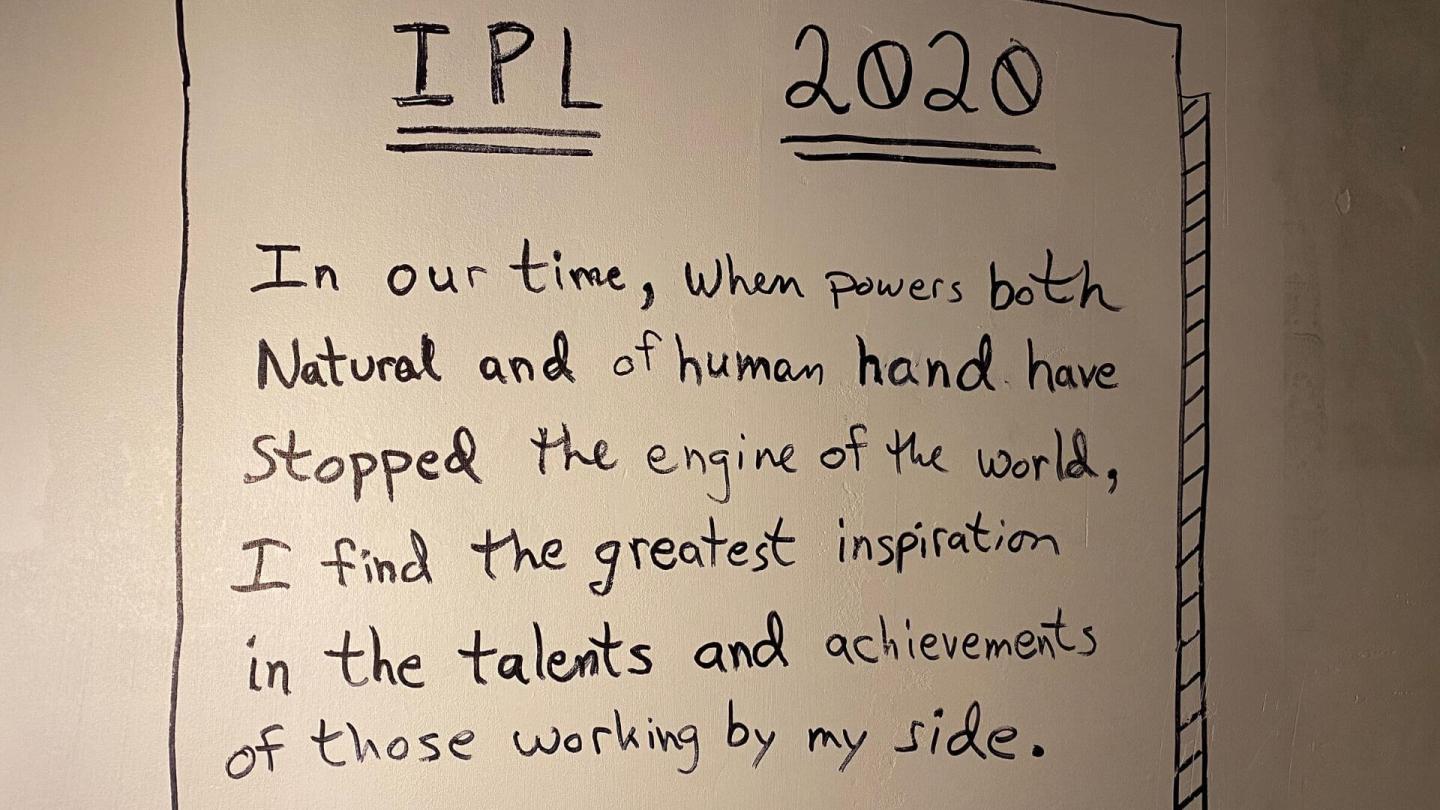 IPL 2020
In our time, when powers both
Natural and of human hand have
Stopped the engine of the world,
I find the greatest inspiration
in the talents and achievements
of those working by my side.